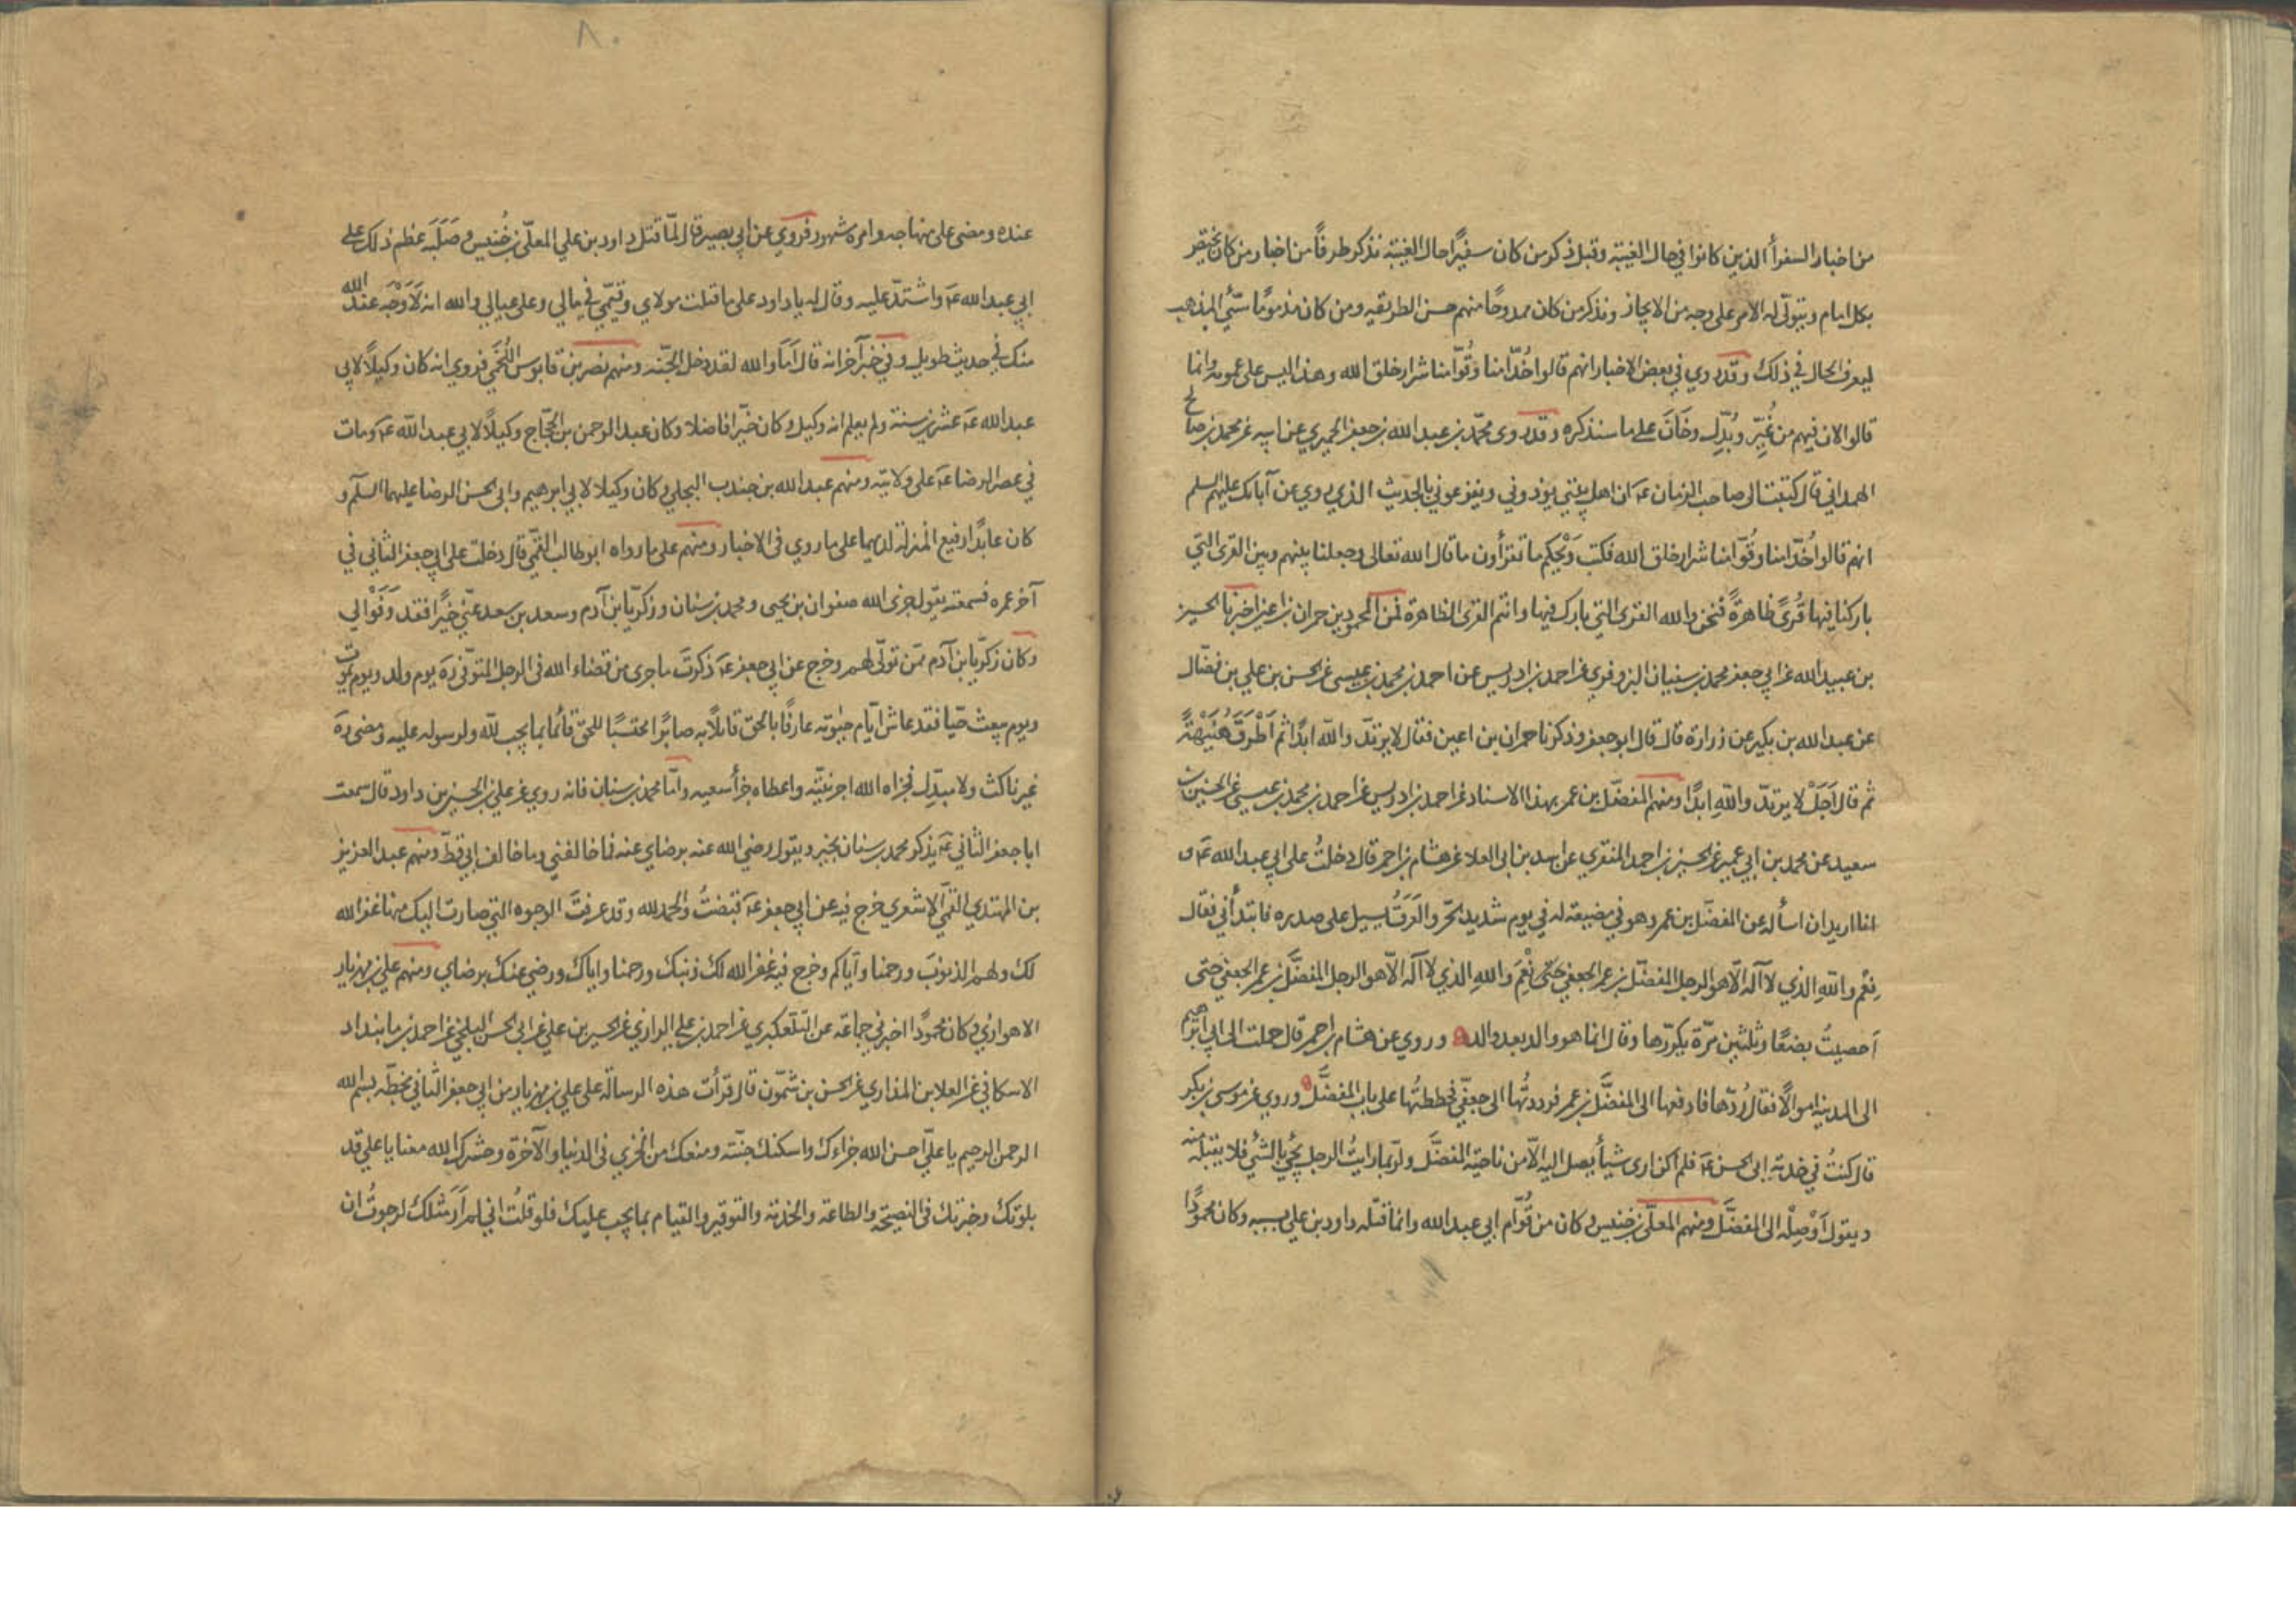 من اخبار السفرأ الذين كانوا في حال الغيبة وقبل ذكر من كان سفيرًا حال الغيبة نذكر طرفًا من اخبار من كان يختص
بكل امام ويتولّى له الامر على وجه من الايجاز ونذكر من كان ممدوحًا منهم حسن الطريقه ومن كان مذمومًا سيّئ المذهب
ليعرف الحال في ذلك وقد روي في بعض الاخبار انهم قالوا خُدّامنا وقُوّامنا شرار خلق الله وهذا ليس على عمومه وانما
قالوا لان فيهم من غُيّر وبُدّل وخَانَ على ما سنذكره وقد روى محمّد بن عبد الله بن جعفر الحميري عن ابيه عن محمد بن صالح
الهمداني قال كتبت الى صاحب الزمان عه ان اهل بيتي يوذوني ويفزعوني بالحديث الذي روي عن آبائك عليهم السلم
انهم قالوا خُدّامنا وقُوّامنا شرار خلق الله فكتب وَيْحكم ما تقرأون ما قال الله تعالى وجعلنا بينهم وبين القرى التي
باركنا فيها قُرىً ظاهرةً فنحن والله القرى التي بارك فيها وانتم القرى الظاهرة فمن المحمودين حمران بن اعين اخبرنا الحسين
بن عبيد الله عن ابي جعفر محمد بن سفيان البزوفري عن احمد بن ادريس عن احمد بن محمد بن عيسى عن الحسن بن علي بن فضّال
عن عبد الله بن بكير عن زرارة قال قال ابو جعفر وذكرنا حمران بن اعين فقال لا يرتدّ والله ابدًا ثم اَطْرَقَ هُنَيْهةً
ثم قال اَجَلْ لا يرتدّ واللهِ ابدًا ومنهم المفضّل بن عمر بهذا الاسناد عن احمد بن ادريس عن احمد بن محمد بن عيسى عن الحسين بن
سعيد عن محمد بن ابي عمير عن الحسين بن احمد المنقري عن اسد بن ابى العلا عن هشام بن احمر قال دخلتُ على ابي عبد الله عه و
انا اريد ان اسأله عن المفضّل بن عمر وهو في مضيعة له في يوم شديد الحرّ والعَرَقُ يسيل على صدره فابتدأني فقال
نِعْمَ واللهِ الذي لا آله الّا هو الرجل المفضّل بن عمر الجعفي حتّى نِعْمَ واللهِ الذي لا آله الّا هو الرجل المفضَّل بن عمر الجعفي حتى
اَحصيتُ بضعًا وثلثين مرّة يكرّرها وقال انما هو والد بعد والد ه وروي عن هشام بن احمر قال حملت الى ابي ابرهيم
الى المدينة اموالًا فقال رُدّها فادفعها الى المفضَّل بن عمر فرددتُها الى جعفيّ فحططتُها على باب المفضَّل ه وروي عن موسى بن بكر
قال كنتُ في خدمة ابى الحسن عه فلم اكن ارى شيأ يصل اليه الّا من ناحية المفضَّل ولربّما رايتُ الرجل يجيُ بالشئ فلا يقبله منه
ويقول اَوْصِلْه الى المفضَّل ومنهم المعلّى بن خنيس وكان من قُوّام ابي عبد الله وانما قتله داود بن علي بسببه وكان محمودًا
٨٠
عنده ومضى على منهاجه وامره مشهور فروي عن ابي بصير قال لمّا قتل داود بن علي المعلّى بن خُنيس وصَلَبَه عظم ذلك على
ابي عبد الله عه واشتدّ عليه وقال له يا داود على ما قتلت مولاي وقيّمي في مالي وعلى عيالي والله انه لَاَوْجَه عند الله
منك في حديث طويل وفي خبر آخر انه قال اَمَا والله لقد دخل الجّنه ومنهم نصر بن قابوس اللّخمي فروي انه كان وكيلًا لابي
عبد الله عه عشرين سنة ولم يعلم انه وكيل وكان خيّرا فاضلا وكان عبد الرحمن بن الحجّاج وكيلًا لابي عبد الله عه ومات
في عصر الرضا عه على ولايته ومنهم عبد الله بن جندب البجلي وكان وكيلا لابي ابرهيم وابي الحسن الرضا عليهما السلم و
كان عابدًا رفيع المنزلة لديهما على ما روي في الاخبار ومنهم على ما رواه ابو طالب القمّي قال دخلت على ابي جعفر الثاني في
آخر عمره فسمعته يقول جزى الله صفوان بن يحيى ومحمد بن سنان وزكريّا بن آدم وسعد بن سعد عنّي خيرًا فقد وَفَوْا لي
وكان زكريّا بن آدم ممّن تولّاهم وخرج عن ابي جعفر عه ذكرتَ ما جرى من قضاء الله في الرجل المتوفّى ره يوم ولد ويوم يموت
ويوم يبعث حيّا فقد عاش ايّام حيوته عارفًا بالحق قائلًا به صابرًا محتسبًا للحق قائما بما يجب لله ولرسوله عليه ومضى ره
غير ناكث ولا مبدّل فجزاه الله اجر نيّته واعطاه جزأ سعيه وامّا محمد بن سنان فانه روي عن علي بن الحسين بن داود قال سمعت
ابا جعفر الثاني عه يذكر محمد بن سنان بخير ويقول رضي الله عنه برضاي عنه فما خالفني وما خالف ابي قطّ ومنهم عبد العزيز
بن المهتدي القمّي الاشعري خرج فيه عن ابي جعفر عه قبضتُ والحمد لله وقد عرفتَ الوجوه التي صارت اليك منها غفر الله
لك ولهم الذنوبَ ورحمنا وايّاكم وخرج فيه غفر الله لك ذنبك ورحمنا واياك ورضي عنك برضاي ومنهم علي بن مهزيار
الاهوازي وكان محمودًا اخبرني جماعة عن التلعكبري عن احمد بن علي الرازي عن الحسين بن علي عن ابي الحسن البلخي عن احمد بن مابنداد
الاسكافي عن العلا بن المذاري عن الحسن بن شمّون قال قرأت هذه الرسالة على علي بن مهزيار من ابي جعفر الثاني بخطّه بسم الله
الرحمن الرحيم يا عليّ احسن الله جزاءك واسكنك جنّته ومنعك من الخزي في الدنيا والآخرة وحشرك الله معنا يا علي قد
بلوتك وخبرتك في النصيحة والطاعة والخدمة والتوقير والقيام بما يجب عليك فلو قلتُ اني لم اَرَ مثلك لرجوتُ ان